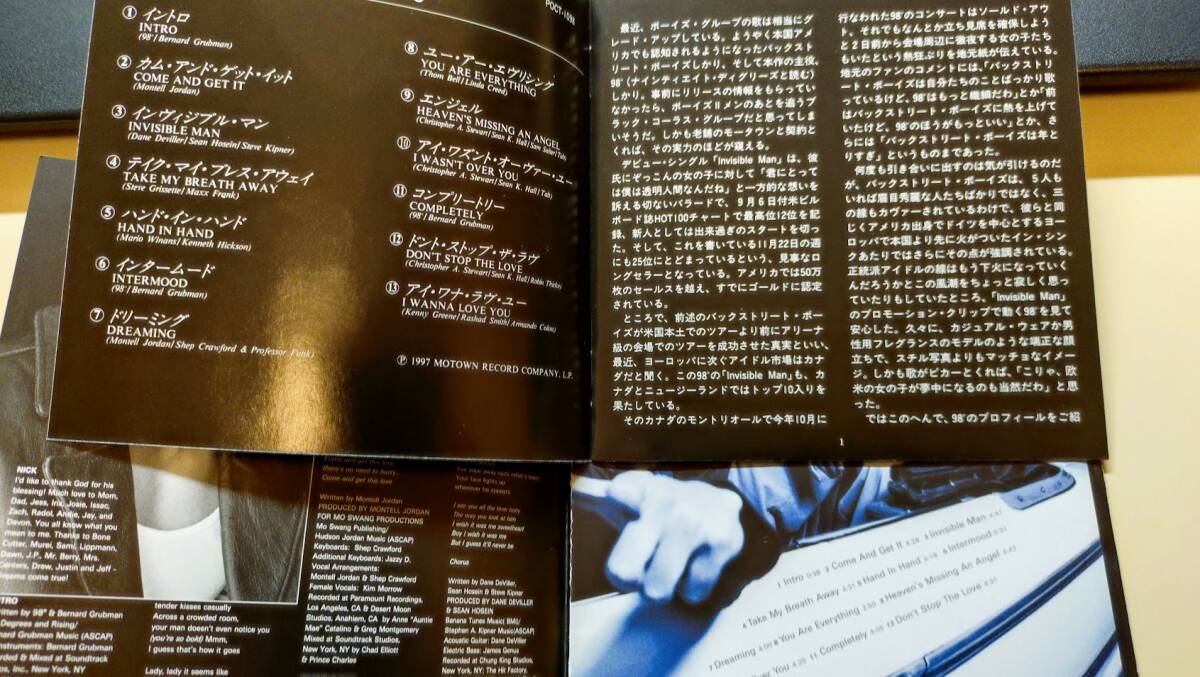 POCT-1098
① イントロ
INTRO
(98°/Bernard Grubman)
② カム・アンド・ゲット・イット
COME AND GET IT
(Montell Jordan)
③ インヴィジブル・マン
INVISIBLE MAN
(Dane Deviller/Sean Hosein/Steve Kipner)
④ テイク・マイ・ブレス・アウェイ
TAKE MY BREATH AWAY
(Steve Grissette/Maxx Frank)
⑤ ハンド・イン・ハンド
HAND IN HAND
(Mario Winans/Kenneth Hickson)
⑥ インタームード
INTERMOOD
(98°/Bernard Grubman)
⑦ ドリーミング
DREAMING
(Montell Jordan/Shep Crawford & Professor Funk)
⑧ ユー・アー・エヴリシング
YOU ARE EVERYTHING
(Thom Bell/Linda Creed)
⑨ エンジェル
HEAVEN'S MISSING AN ANGEL
(Christopher A. Stewart/Sean K. Hall/Sam Salter/Tab)
⑩ アイ・ワズント・オーヴァー・ユー
I WASN'T OVER YOU
(Christopher A. Stewart/Sean K. Hall/Tab)
⑪ コンプリートリー
COMPLETELY
(98°/Bernard Grubman)
⑫ ドント・ストップ・ザ・ラヴ
DON'T STOP THE LOVE
(Christopher A. Stewart/Sean K. Hall/Robin Thicke)
⑬ アイ・ワナ・ラヴ・ユー
I WANNA LOVE YOU
(Kenny Greene/Rashad Smith/Armando Colon)
Ⓟ 1997 MOTOWN RECORD COMPANY, L.P.
最近、ボーイズ・グループの歌は相当にグ
レード・アップしている。ようやく本国アメ
リカでも認知されるようになったバックスト
リート・ボーイズしかり、そして本作の主役、
98°(ナインティエイト・ディグリーズと読む)
しかり。事前にリリースの情報をもらってい
なかったら、ボーイズⅡメンのあとを追うブ
ラック・コーラス・グループだと思ってしま
いそうだ。しかも老舗のモータウンと契約と
くれば、その実力のほどが窺える。
デビュー・シングル「Invisible Man」は、彼
氏にぞっこんの女の子に対して「君にとって
は僕は透明人間なんだね」と一方的な想いを
訴える切ないバラードで、9月6日付米ビル
ボード誌HOT100チャートで最高位12位を記
録、新人としては出来過ぎのスタートを切っ
た。そして、これを書いている11月22日の週
にも25位にとどまっているという、見事なロ
ングセラーとなっている。アメリカでは50万
枚のセールスを越え、すでにゴールドに認定
されている。
ところで、前述のバックストリート・ボー
イズが米国本土でのツアーより前にアリーナ
級の会場でのツアーを成功させた真実といい、
最近、ヨーロッパに次ぐアイドル市場はカナ
ダだと聞く。この98°の「Invisible Man」も、カ
ナダとニュージーランドではトップ10入りを
果たしている。
そのカナダのモントリオールで今年10月に
行なわれた98°のコンサートはソールド・アウ
ト、それでもなんとか立ち見席を確保しよう
と2日前から会場周辺に徹夜する女の子たち
もいたという熱狂ぶりを地元紙が伝えている。
地元のファンのコメントには、「バックストリ
ート・ボーイズは自分たちのことばっかり歌
っているけど、98°はもっと繊細だわ」とか「前
はバックストリート・ボーイズに熱を上げて
いたけど、98°のほうがもっといい」とか、さ
らには「バックストリート・ボーイズは年と
りすぎ」というものまであった。
何度も引き合いに出すのは気が引けるのだ
が、バックストリート・ボーイズは、5人も
いれば眉目秀麗な人たちばかりではなく、三
の線もカヴァーされているわけで、彼らと同
じくアメリカ出身でドイツを中心とするヨー
ロッパで本国より先に火がついたイン・シン
クあたりではさらにその点が強調されている。
正統派アイドルの線はもう下火になっていく
んだろうかとこの風潮をちょっと寂しく思っ
ていたりもしていたところ、「Invisible Man」
のプロモーション・クリップで動く98°を見て
安心した。久々に、カジュアル・ウェアか男
性用フレグランスのモデルのような端正な顔
立ちで、スチル写真よりもマッチョなイメー
ジ。しかも歌がピカーとくれば、「こりゃ、欧
米の女の子が夢中になるのも当然だわ」と思
った。
ではこのへんで、98°のプロフィールをご紹
1
NICK
I'd like to thank God for his
blessing! Much love to Mom,
Dad, Jess, Iris, Josie, Issac,
Zach, Radol, Andie, Jay, and
Devon. You all know what you
mean to me. Thanks to Bone
Cutter, Murei, Sami, Lippmann,
Dawn, J.P., Mr. Berry, Mrs.
Centers, Drew, Justin and Jeff -
seems come true!
NTRO
ritten by 98° & Bernard Grubman
Degrees and Rising/
nard Grubman Music (ASCAP)
struments: Bernard Grubman
orded & Mixed at Soundtrack
os, Inc., New York, NY
tender kisses casually
Across a crowded room,
your man doesn't even notice you
(you're so bold) Mmm,
I guess that's how it goes
Lady, lady it seems like
there's no need to hurry,
Come and get this love
Written by Montell Jordan
PRODUCED BY MONTELL JORDAN
FOR MO SWANG PRODUCTIONS
Mo Swang Publishing/
Hudson Jordan Music (ASCAP)
Keyboards: Shep Crawford
Additional Keyboards: Jazzy D.
Vocal Arrangements:
Montell Jordan & Shep Crawford
Female Vocals: Kim Morrow
Recorded at Paramount Recording,
Los Angeles, CA & Desert Moon
Studios, Anahiem, CA by Anne "Auntie
Mae" Catalino & Greg Montgomery
Mixed at Soundtrack Studios,
New York, NY by Chad Elliott
& Prince Charles
Your face lights up
whenever he appears
I see you all the time baby
The way you look at him
I wish it was me sweetheart
Boy I wish it was me
But I guess it'll never be
Chorus
Written by Dane DeViller,
Sean Hosein & Steve Kipner
PRODUCED BY DANE DEVILLER
& SEAN HOSEIN
Banana Tunes Music BMI/
Stephen A. Kipner Music(ASCAP)
Acoustic Guitar: Dane DeViller
Electric Bass: James Genus
Recorded at Chung King Studios,
New York, NY; The Hit Factory,
1 Intro 0:38 2 Come And Get It 4:28 3 Invisible Man 4:41
4 Take My Breath Away 4:31 5 Hand In Hand 5:18 6 Intermood 0:31
7 Dreaming 4:00 8 You Are Everything 2:50 9 Heaven's Missing An Angel 4:42
Over You 4:20 11 Completely 4:06 12 Don't Stop The Love 4:31